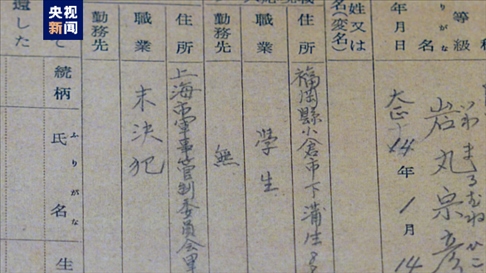 央视新闻
等級
りがな
名
いわまるむねひこ
岩丸宗彦
年月日
大正14年1月14
姓又は
名(変名)
住所
福岡縣小倉市下蒲生
職業
學生
勤務先
無
住所
上海市軍事管制委員会軍
職業
未決犯
勤務先
と
遺した
続柄
ふりがな
氏名
生